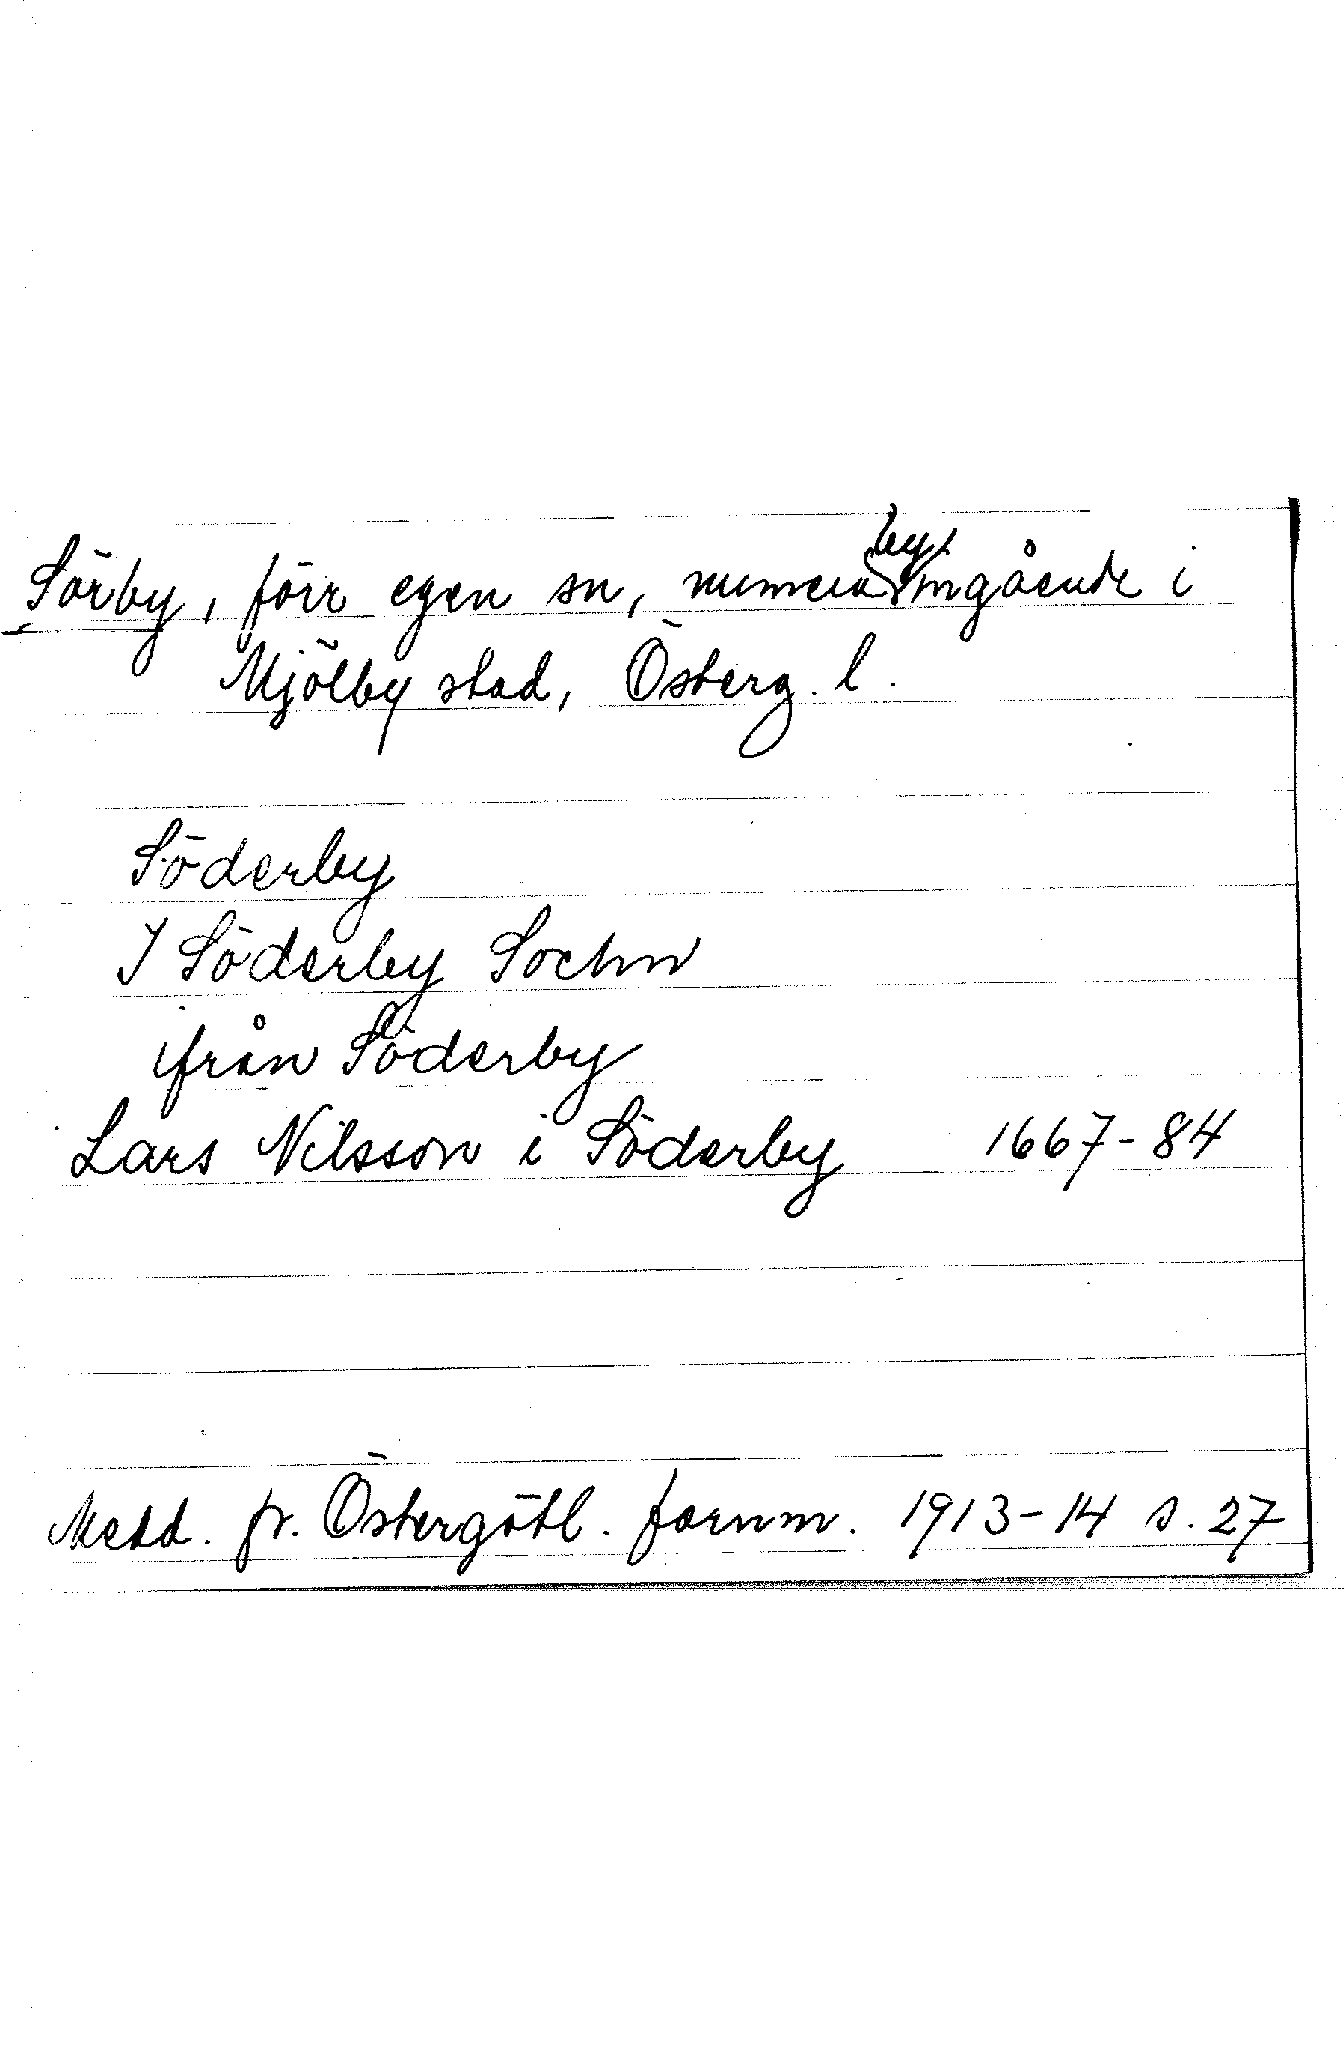 Sörby, förr egen sn, numera by, ingående i
Mjölby stad, Österg. l.
Söderby
I Söderby Sochn
ifrån Söderby
Lars Nilsson i Söderby 1667-84
Medd. fr. Östergötl. fornm. 1913-14 s. 27